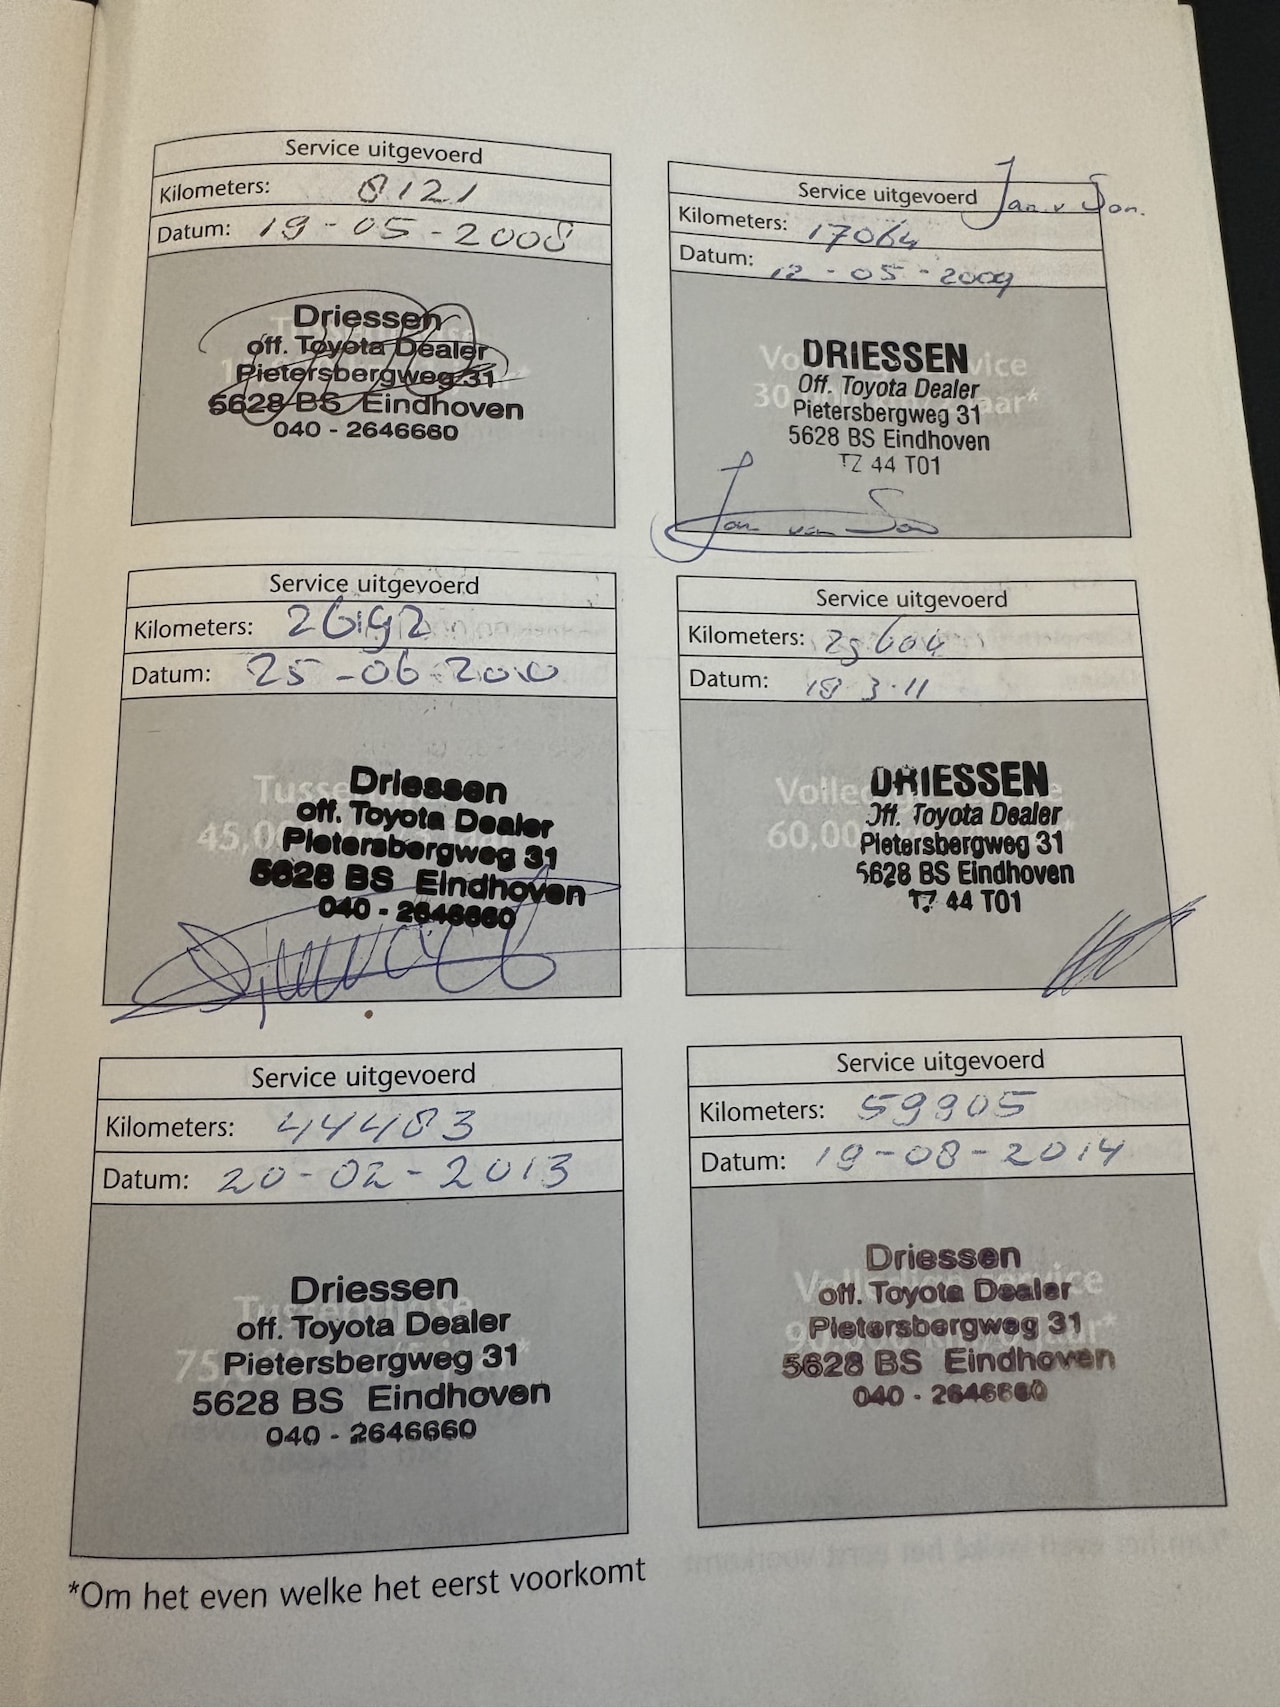 Service uitgevoerd
Kilometers: 8121
Datum: 19-05-2008
Driessen
off. Toyota Dealer
Pietersbergweg 31
5628 BS Eindhoven
040 - 2646660
Service uitgevoerd Jan v Son.
Kilometers: 17064
Datum: 12-05-2009
DRIESSEN
Off. Toyota Dealer
Pietersbergweg 31
5628 BS Eindhoven
TZ 44 T01
Jan van Son
Service uitgevoerd
Kilometers: 26192
Datum: 25-06-2010
Tussen
45,00
Driessen
off. Toyota Dealer
Pietersbergweg 31
5628 BS Eindhoven
040 - 2646660
Service uitgevoerd
Kilometers:
Datum: 18 3.11
60,00
DRIESSEN
Off. Toyota Dealer
Pietersbergweg 31
5628 BS Eindhoven
TZ 44 T01
Service uitgevoerd
Kilometers: 44483
Datum: 20-02-2013
Driessen
off. Toyota Dealer
Pietersbergweg 31
5628 BS Eindhoven
040 - 2646660
Service uitgevoerd
Kilometers: 59905
Datum: 19-08-2014
Driessen
off. Toyota Dealer
Pietersbergweg 31
5628 BS Eindhoven
040 - 2646660
*Om het even welke het eerst voorkomt